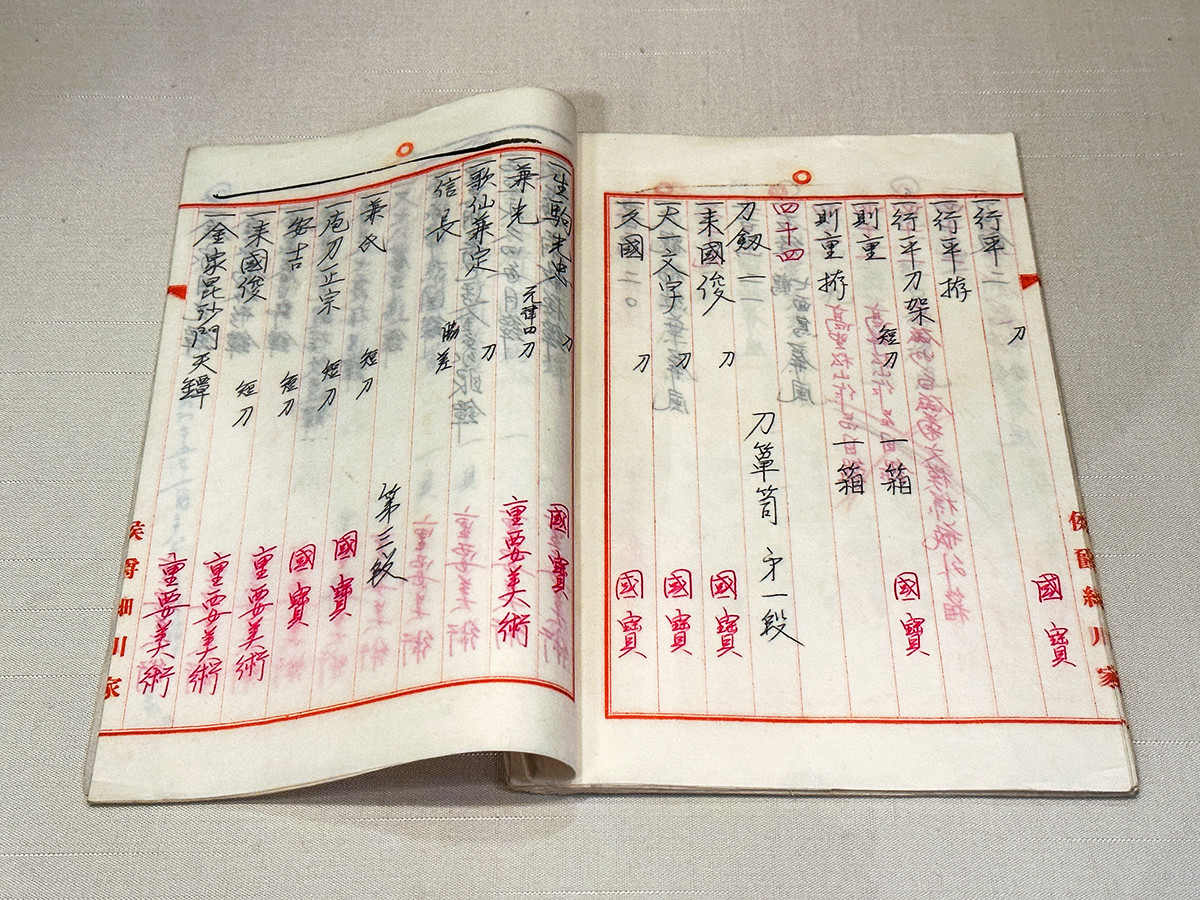 一行平 二 刀 國寶
一行平 拵
一行平刀架
一則重 短刀 一箱 國寶
一則重拵 一箱
四十四
刀劔 一 刀簞笥 第一段
一来國俊 刀 國寶
一尺一文字 刀 國寶
一友國二〇 刀 國寶
一生駒光忠 刀 國寶
一兼光 刀 重要美術
一歌仙兼定 刀
一信長 脇差
一兼氏 短刀 第三段
一庖刀正宗 短刀 國寶
一安吉 短刀 國寶
一来國俊 短刀 重要美術
一金家毘沙門天鐔 重要美術
重要美術
侯爵細川家
侯爵細川家